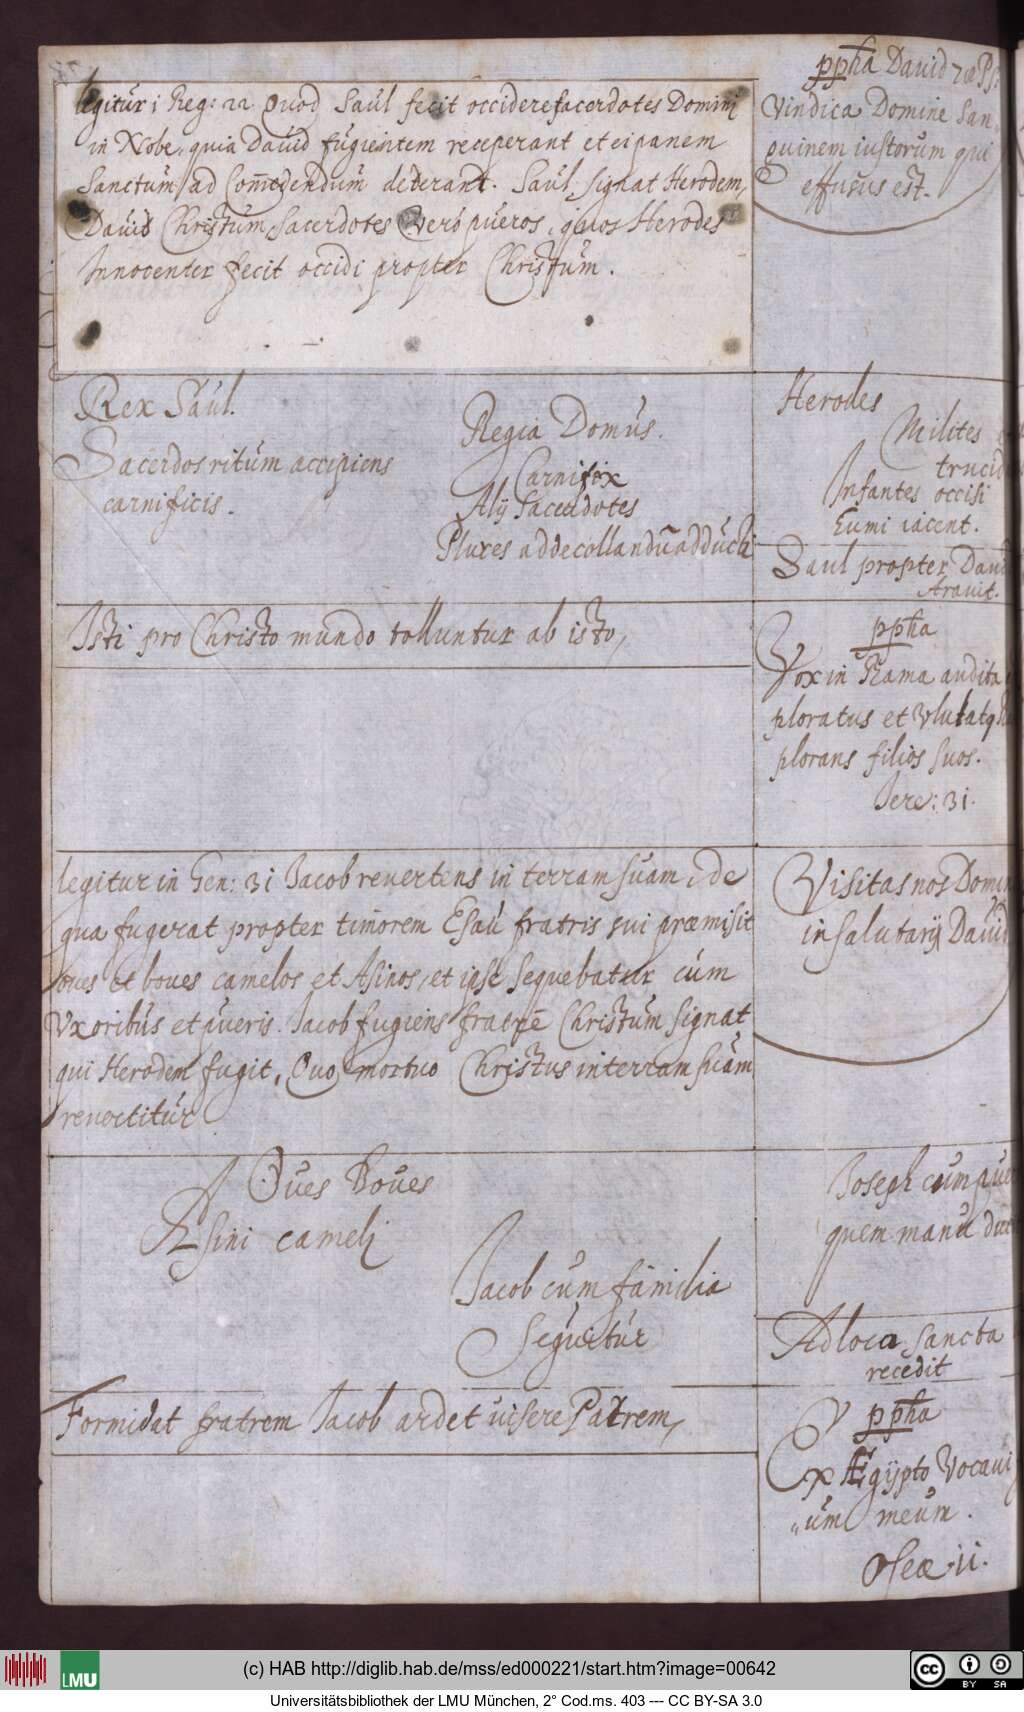 legitur i Reg: 22 Quod Saul fecit occidere sacerdotes Domini
in Nobe, quia David fugientem receperant et ei panem
Sanctum ad Comedendum dederant. Saul signat Herodem,
David Christum Sacerdotes vero pueros, quos Herodes
Innocenter fecit occidi propter Christum.
ppha David
Vindica Domine San„
guinem iustorum qui
effusus est.
Rex Saul.
Sacerdos ritum accipiens
carnificis.
Regia Domus.
Carnifix
Alij Sacerdotes
Plures ad decollandũ adducti
Herodes
Milites
trucid
Infantes occisi
Eumi iacent.
Saul propter Davi
Isti pro Christo mundo tolluntur ab isto,
ppha
Vox in Rama audita
ploratus et Vlulatq
plorans filios suos.
Iere: 31.
legitur in Gen: 31 Iacob revertens in terram suam, de
qua fugerat propter timorem Esau fratris sui præmisit
oves et boves camelos et Asinos, et ipse sequebatur cum
Vxoribus et pueris. Iacob fugiens fratrẽ Christum signat
qui Herodem fugit, Quo mortuo Christus in terram suam
revertitur
Visitas nos Domin
in salutarij David
Oves Boves
Asini cameli
Iacob cum familia
Sequitur
Ioseph cum pue
quem manu duc
Ad loca sancta
recedit
Formidat fratrem Iacob ardet visere Patrem,
ppha
Ex Ægijpto Vocavi
„um meum.
Oseæ .ii.
LMU
(c) HAB http://diglib.hab.de/mss/ed000221/start.htm?image=00642
cc BY SA
Universitätsbibliothek der LMU München, 2° Cod.ms. 403 --- CC BY-SA 3.0